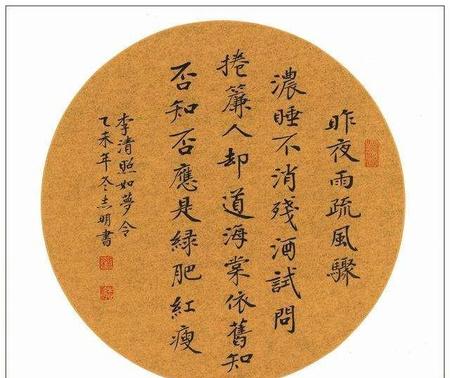 昨夜雨疏風驟
濃睡不消殘酒試問
捲簾人却道海棠依舊知
否知否應是綠肥紅瘦
李清照如夢令
乙未年冬志明書